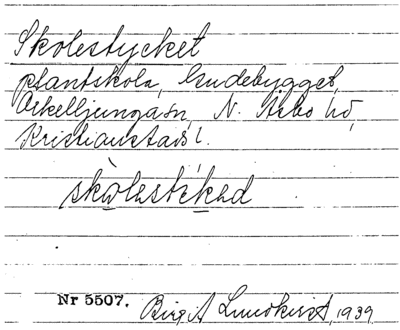 Skolestycket
plantskola, Gudebygget,
Örkelljunga sn, N. Åsbo hd,
Kristianstads l.
skòlestỳkad
Nr 5507. Birgit Lundkvist, 1939